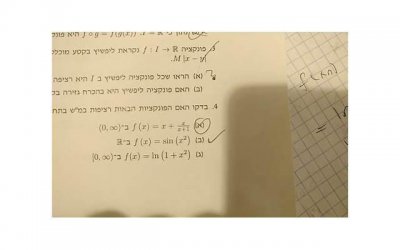 f ∘ g = f(g(x)) כי I = ℝ. היא פונק
3. פונקציה f : I → ℝ נקראת ליפשיץ בקטע מוכלל
.M |x − y|
(א) הראו שכל פונקציה ליפשיץ ב I היא רציפה
(ב) האם פונקציה ליפשיץ היא בהכרח גזירה בק
4. בדקו האם הפונקציות הבאות רציפות במ"ש בתח
(א) f (x) = x + x/(x+1) ב־(0, ∞)
(ב) f (x) = sin (x²) ב־ℝ
(ג) f (x) = ln (1 + x²) ב־[0, ∞)